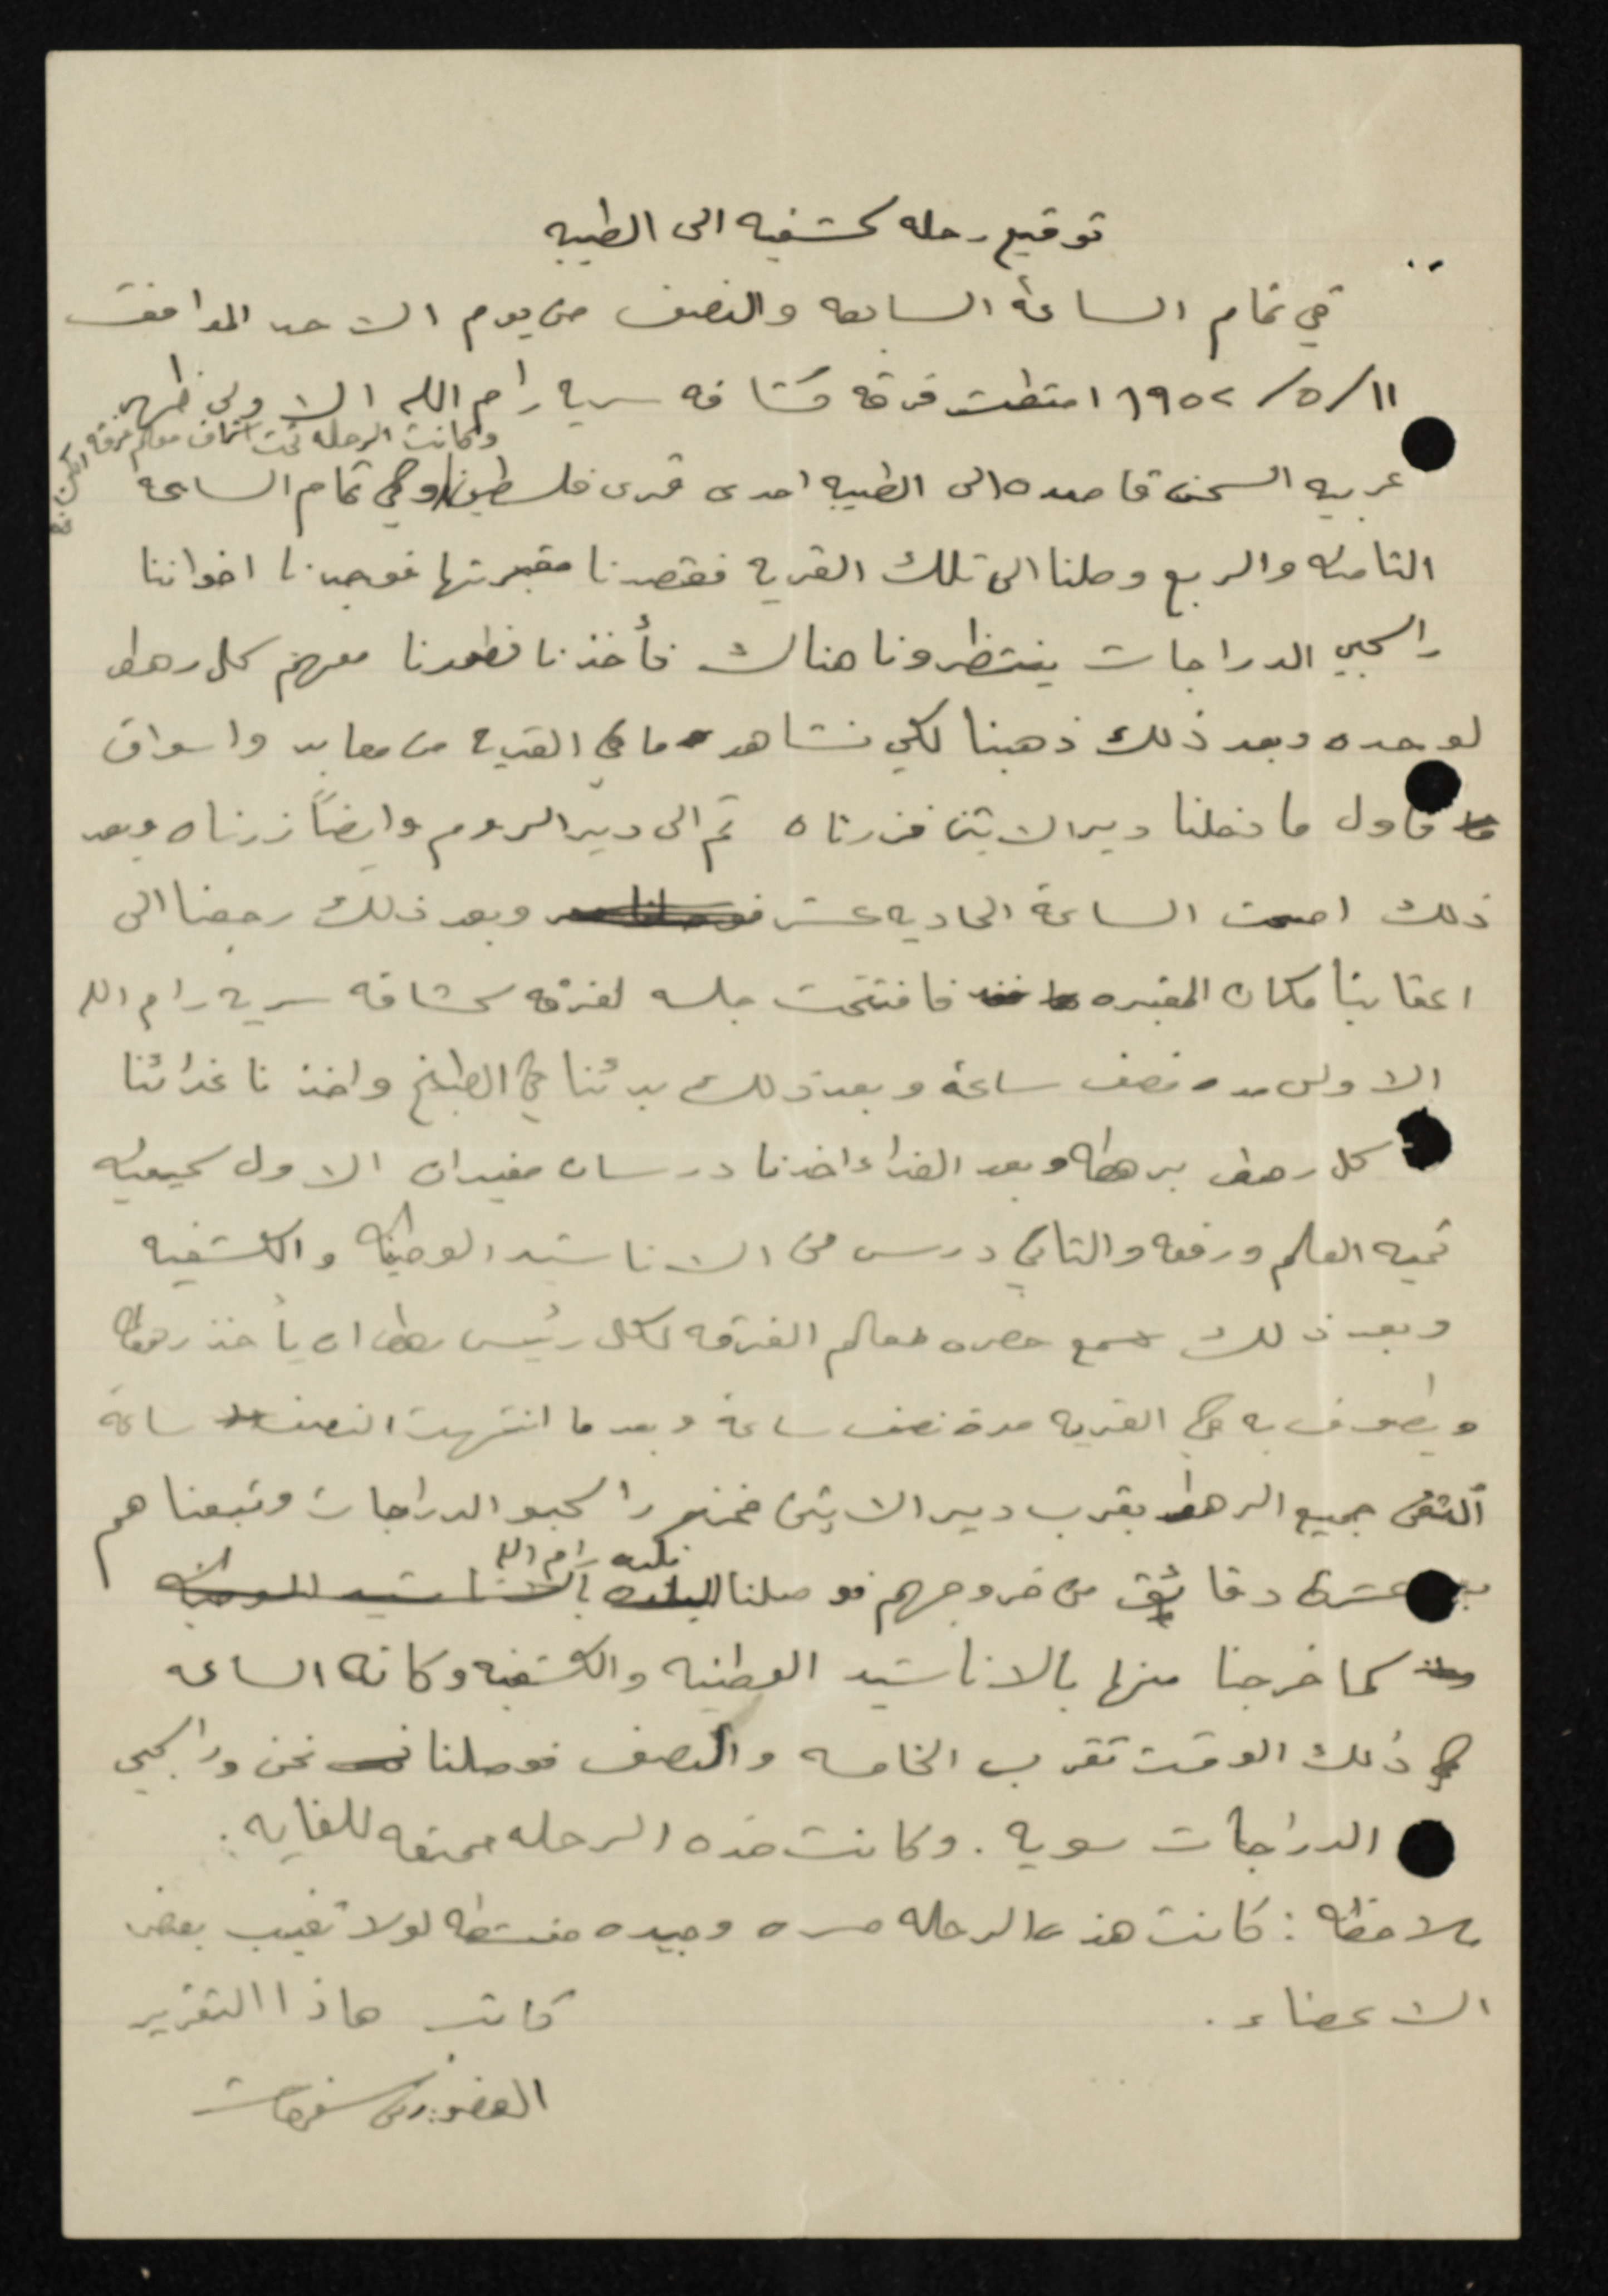 توقيع رحله كشفيه الى الطيبه
في تمام الساعة السابعه والنصف من يوم الاحد الموافق
١١/ ٥/ ١٩٥٢ امتطت فرقه كشافه سريه رام الله الاولى ظهر
وكانت الرحله تحت اشراف معلم فرقه
عربيه السحن قاصده الى الطيبه احدى قرى فلسطين وفي تمام الساعة
الثامنه والربع وصلنا الى تلك القريه فقصدنا مقبرتها فوجدنا اخواننا
راكبي الدراجات ينتظرونا هناك فأخذنا فطورنا معهم كل رهط
لوحده وبعد ذلك ذهبنا لكي نشاهد ما في القريه من معابد واسواق
فاول ما دخلنا دير الاتين فزرناه ثم الى دير الروم وايضاً زرناه وبعد
ذلك اصبحت الساعة الحاديه عشر وبعد ذلك رجعنا الى
اعقابنا مكان المقبره فافتتحت جلسه لفرقه كشافه سريه رام الله
الاولى مده نصف ساعة وبعد ذلك بدئنا في الطبخ واخذنا غدائنا
كل رهط برهطه وبعد الغداء اخذنا درسان مفيدان الاول كيفيه
تحيه العلم ورفعه والثاني درس من الاناشيد الوطنيه والكشفيه
وبعد ذلك سمح حضره معلم الفرقه لكل رئيس رهط ان يأخذ رهطه
ويطوف به في القريه مدة نصف ساعة وبعد ما انتهت النصف ساعة
ألتقى جميع الرهط بقرب دير الاتين فخرج راكبو الدراجات وتبعناهم
عشرة دقائق من خروجهم فوصلنا البلده رام الله بالاناشيد الوطنيه
كما خرجنا منها بالاناشيد الوطنيه والكشفيه وكانه الساعه
في ذلك الوقت تقرب الخامسه والنصف فوصلنا نحن وراكبي
الدراجات سويه . وكانت هذه الرحله ممتعه للغايه :
ملاحظه : كانت هذه الرحله مسره وجيده منشطه لولا تغيب بعض
الاعضاء .
كاتب هاذا التقرير
العضو